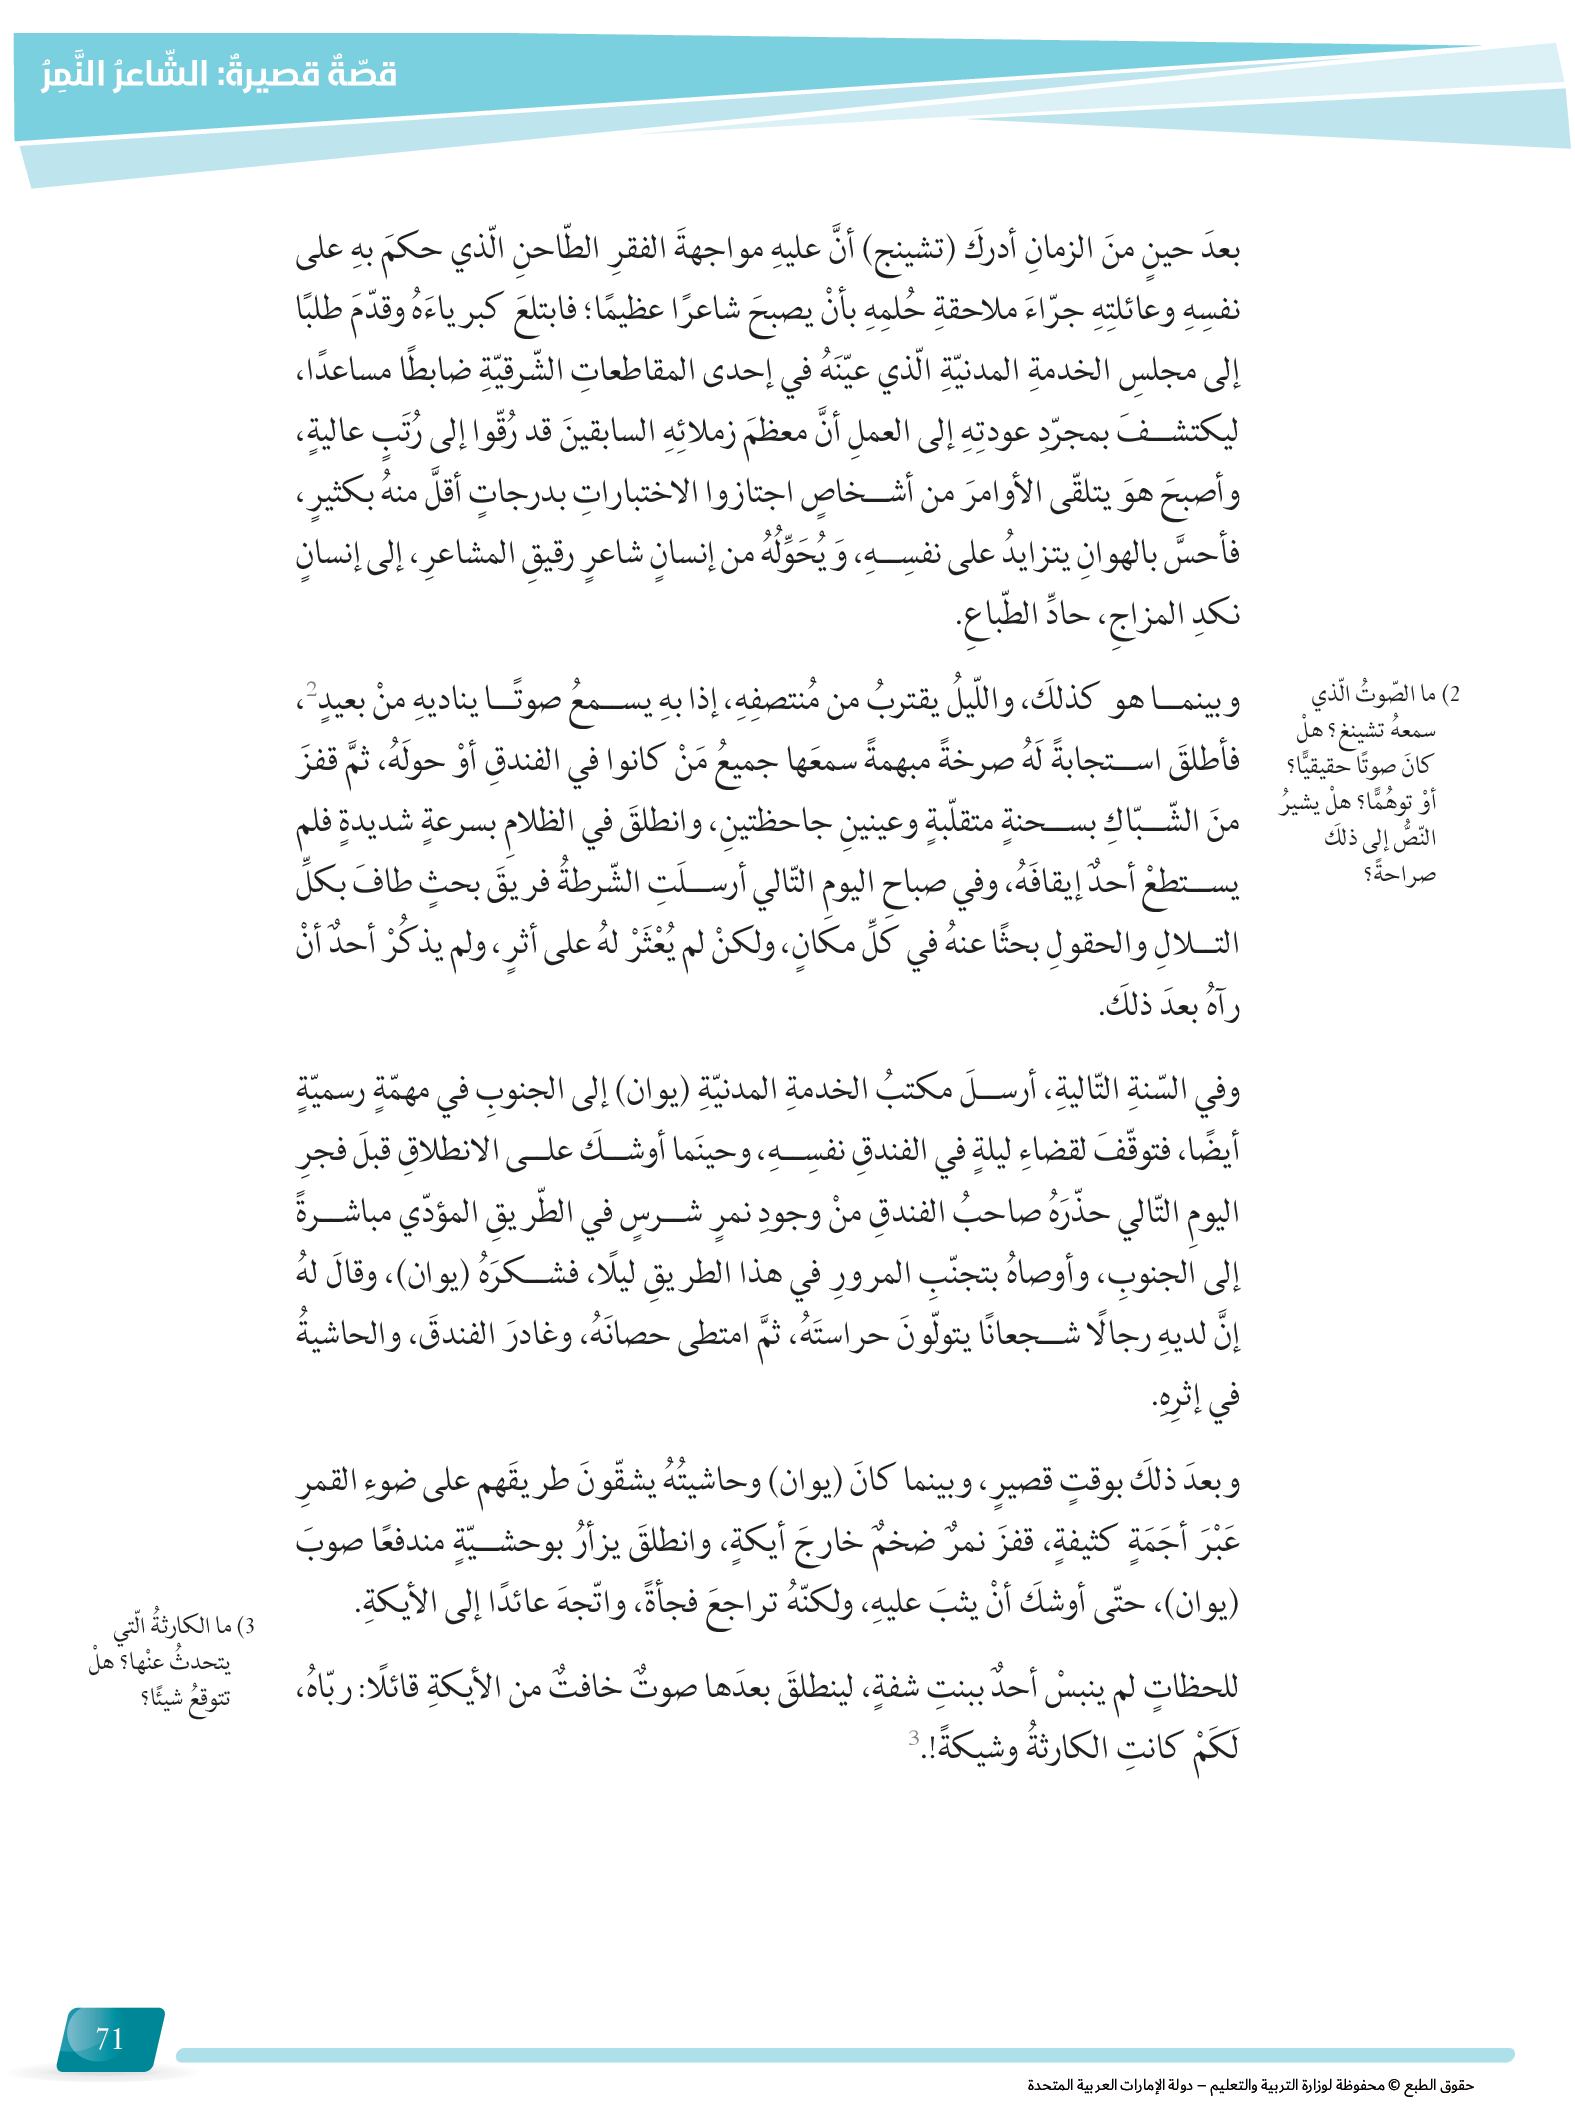 قصّةٌ قصيرةٌ: الشّاعرُ النَّمِرُ
بعدَ حينٍ منَ الزمانِ أدركَ (تشينج) أنَّ عليهِ مواجهةَ الفقرِ الطّاحنِ الّذي حكمَ بهِ على
نفسِهِ وعائلتِهِ جرّاءَ ملاحقةِ حُلمِهِ بأنْ يصبحَ شاعرًا عظيمًا؛ فابتلعَ كبرياءَهُ وقدّمَ طلبًا
إلى مجلسِ الخدمةِ المدنيّةِ الّذي عيّنَهُ في إحدى المقاطعاتِ الشّرقيّةِ ضابطًا مساعدًا،
ليكتشفَ بمجرّدِ عودتِهِ إلى العملِ أنَّ معظمَ زملائِهِ السابقينَ قد رُقّوا إلى رُتَبٍ عاليةٍ،
وأصبحَ هوَ يتلقّى الأوامرَ من أشخاصٍ اجتازوا الاختباراتِ بدرجاتٍ أقلَّ منهُ بكثيرٍ،
فأحسَّ بالهوانِ يتزايدُ على نفسِهِ، وَيُحَوِّلُهُ من إنسانٍ شاعرٍ رقيقِ المشاعرِ، إلى إنسانٍ
نكدِ المزاجِ، حادِّ الطّباعِ.
وبينما هو كذلكَ، واللّيلُ يقتربُ من مُنتصفِهِ، إذا بهِ يسمعُ صوتًا يناديهِ منْ بعيدٍ2،
فأطلقَ استجابةً لَهُ صرخةً مبهمةً سمعَها جميعُ مَنْ كانوا في الفندقِ أوْ حولَهُ، ثمَّ قفزَ
منَ الشّبّاكِ بسحنةٍ متقلّبةٍ وعينينِ جاحظتينِ، وانطلقَ في الظلامِ بسرعةٍ شديدةٍ فلم
يستطعْ أحدٌ إيقافَهُ، وفي صباحِ اليومِ التّالي أرسلَتِ الشّرطةُ فريقَ بحثٍ طافَ بكلِّ
التلالِ والحقولِ بحثًا عنهُ في كَلِّ مكانٍ، ولكنْ لم يُعْثَرْ لهُ على أثرٍ، ولم يذكُرْ أحدٌ أنْ
رآهُ بعدَ ذلكَ.
2) ما الصّوتُ الّذي
سمعهُ تشينغ؟ هلْ
كانَ صوتًا حقيقيًّا؟
أوْ توهُمًّا؟ هلْ يشيرُ
النّصُّ إلى ذلكَ
صراحةً؟
وفي السّنةِ التّاليةِ، أرسلَ مكتبُ الخدمةِ المدنيّةِ (يوان) إلى الجنوبِ في مهمّةٍ رسميّةٍ
أيضًا، فتوقّفَ لقضاءِ ليلةٍ في الفندقِ نفسِهِ، وحينَما أوشكَ على الانطلاقِ قبلَ فجرِ
اليومِ التّالي حذّرَهُ صاحبُ الفندقِ منْ وجودِ نمرٍ شرسٍ في الطّريقِ المؤدّي مباشرةً
إلى الجنوبِ، وأوصاهُ بتجنّبِ المرورِ في هذا الطريقِ ليلًا، فشكرَهُ (يوان)، وقالَ لهُ
إنَّ لديهِ رجالًا شجعانًا يتولّونَ حراستَهُ، ثمَّ امتطى حصانَهُ، وغادرَ الفندقَ، والحاشيةُ
في إثرِهِ.
وبعدَ ذلكَ بوقتٍ قصيرٍ، وبينما كانَ (يوان) وحاشيتُهُ يشقّونَ طريقَهم على ضوءِ القمرِ
عَبْرَ أجَمَةٍ كثيفةٍ، قفزَ نمرٌ ضخمٌ خارجَ أيكةٍ، وانطلقَ يزأرُ بوحشيّةٍ مندفعًا صوبَ
(يوان)، حتّى أوشكَ أنْ يثبَ عليهِ، ولكنّهُ تراجعَ فجأةً، واتّجهَ عائدًا إلى الأيكةِ.
للحظاتٍ لم ينبسْ أحدٌ ببنتِ شفةٍ، لينطلقَ بعدَها صوتٌ خافتٌ من الأيكةِ قائلًا: ربّاهُ،
لَكَمْ كانتِ الكارثةُ وشيكةً!.3
3) ما الكارثةُ الّتي
يتحدثُ عنْها؟ هلْ
تتوقعُ شيئًا؟
71
حقوق الطبع © محفوظة لوزارة التربية والتعليم – دولة الإمارات العربية المتحدة